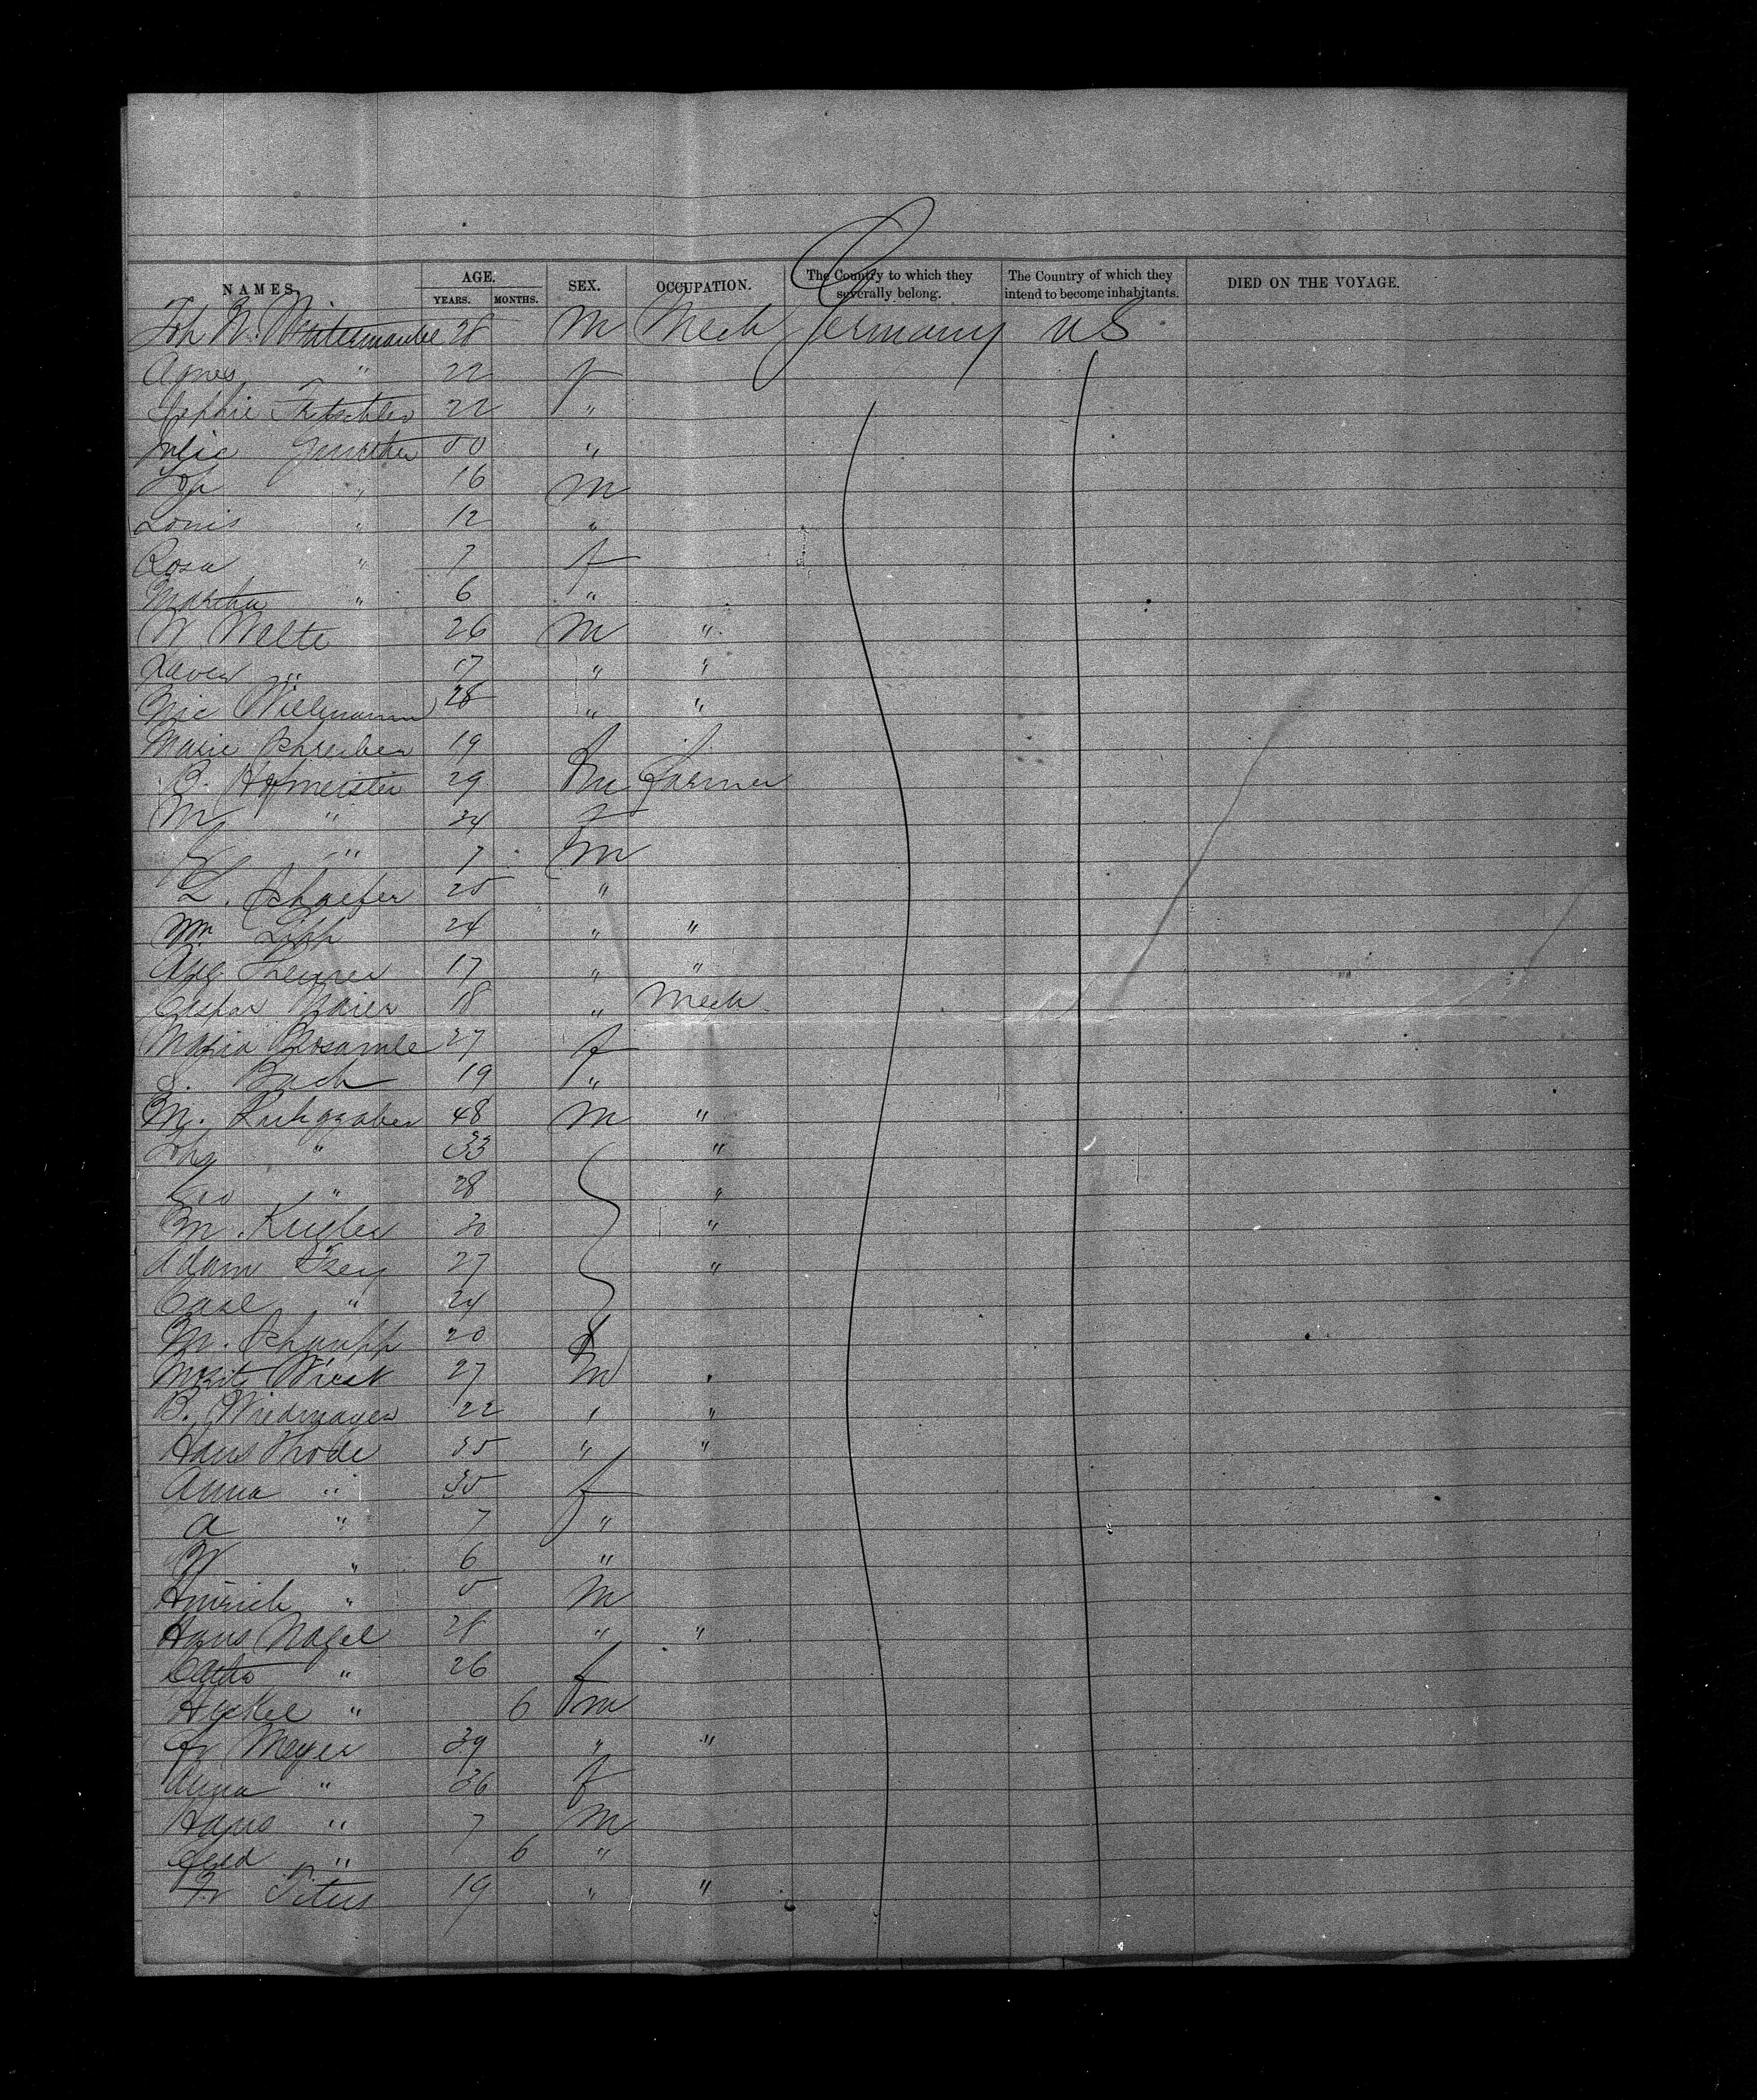 NAMES. AGE. YEARS. MONTHS. SEX. OCCUPATION. The Country to which they severally belong. The Country of which they intend to become inhabitants. DIED ON THE VOYAGE.
Joh W. 28 M Mech Germany US
Agnes " 22 f
Sophie Fritschler 22 "
Julie Gunther 50 "
Joh " 16 M
Louis " 12 "
Rosa " 7 f
Martha " 6 "
W Walte 26 M "
Xaver " 17 " "
Nic Willmann 28 " "
Marie Schreiber 19 f
B. Hofmeister 29 m farmer
M " 24 f
" 7 m
L. Schaefer 25 "
Wm 24 " "
17 " "
Caspar Maier 18 " Mech
Maria 27 f
S. Bach 19 "
M. Kuhgraber 48 M "
" 33 "
Geo " 28 "
M. Kugler 30 "
Adam Frey 27 "
Carl " 24
M. Schaupp 20 f
Moritz Wiest 27 M "
B. Widmayer 22 " "
Hans Thode 35 " "
Anna " 35 f
A " 7 "
W " 6 "
Hinrich " 5 M
Hans Nagel 28 " "
Catha " 26 f
" 6 m
Fr Meyer 39 " "
Anna " 36 f
Hans " 7 M
" 6 "
Fr Titus 19 " "